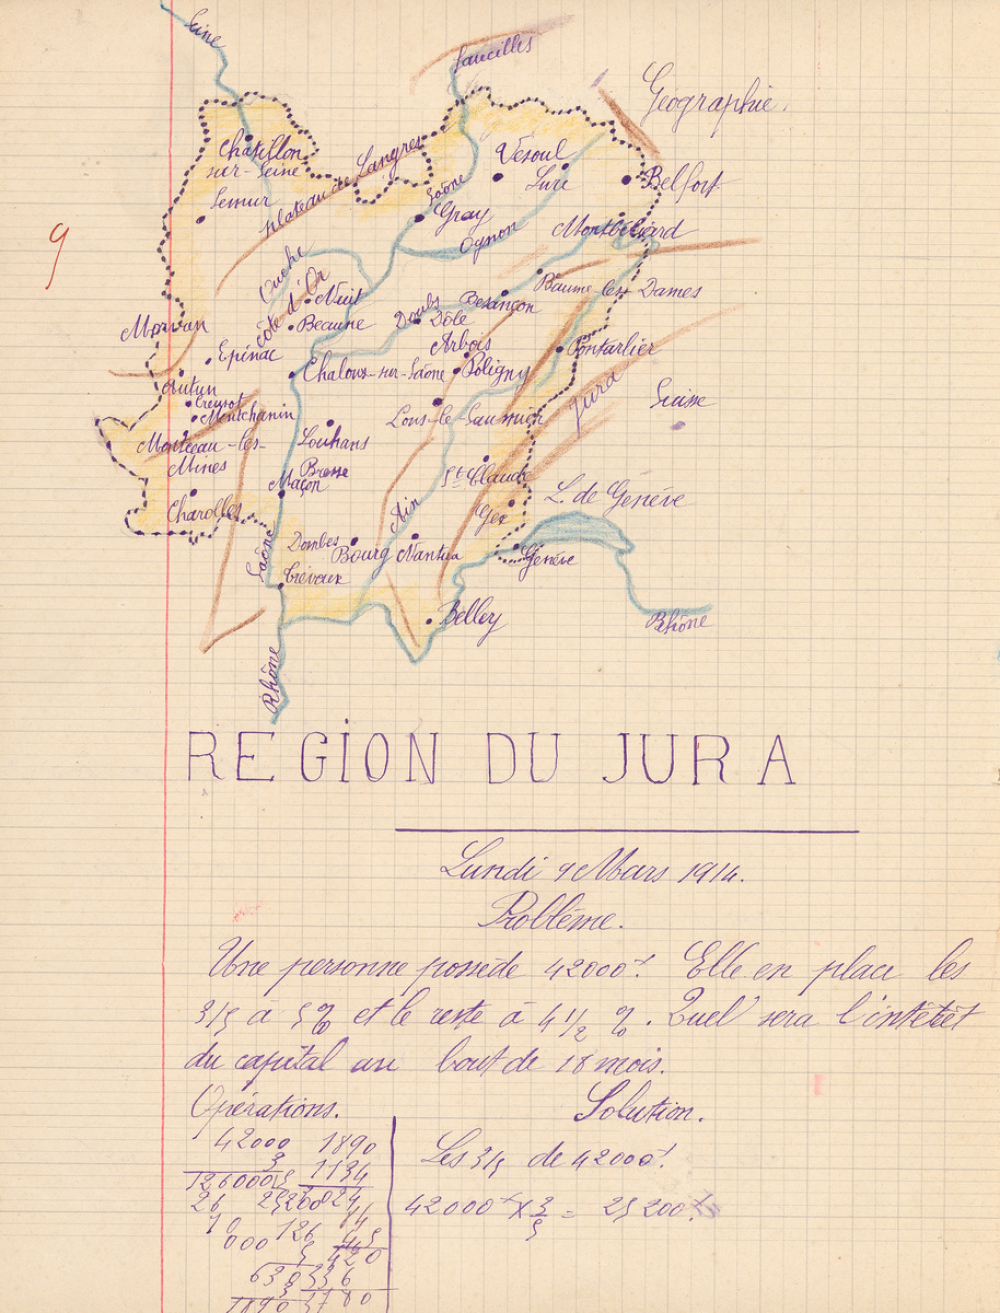 Seine
Faucilles
Géographie.
Chatillon
sur-Seine
Semur
Plateau de Langres
Vesoul
Lure
Belfort
Saône
Gray
Ognon
Montbéliard
9
Ouche
côte d'Or
Nuit
Beaune
Doubs
Dôle
Besançon
Baume les Dames
Morvan
Epinac
Arbois
Poligny
Pontarlier
Chalons-sur-Saône
Autun
Creusot
Montchanin
Lons-le-Saunier
Jura
Suisse
Montceau-les-
Mines
Louhans
Bresse
Maçon
St Claude
Gex
L. de Genève
Charolles
Ain
Saône
Dombes
Bourg
Nantua
Genève
Trévoux
Belley
Rhône
Rhône
REGION DU JURA
Lundi 9 Mars 1914.
Problème.
Une personne possède 42000f. Elle en place les
3/5 à 5% et le reste à 4 1/2 %. Quel sera l'intêtêt
du capital au bout de 18 mois.
Opérations.
Solution.
42000 1890
3 1134
126000 5
Les 3/5 de 42000f.
42000f x 3/5 = 25200f
126
5
630 336
3
1890 3780